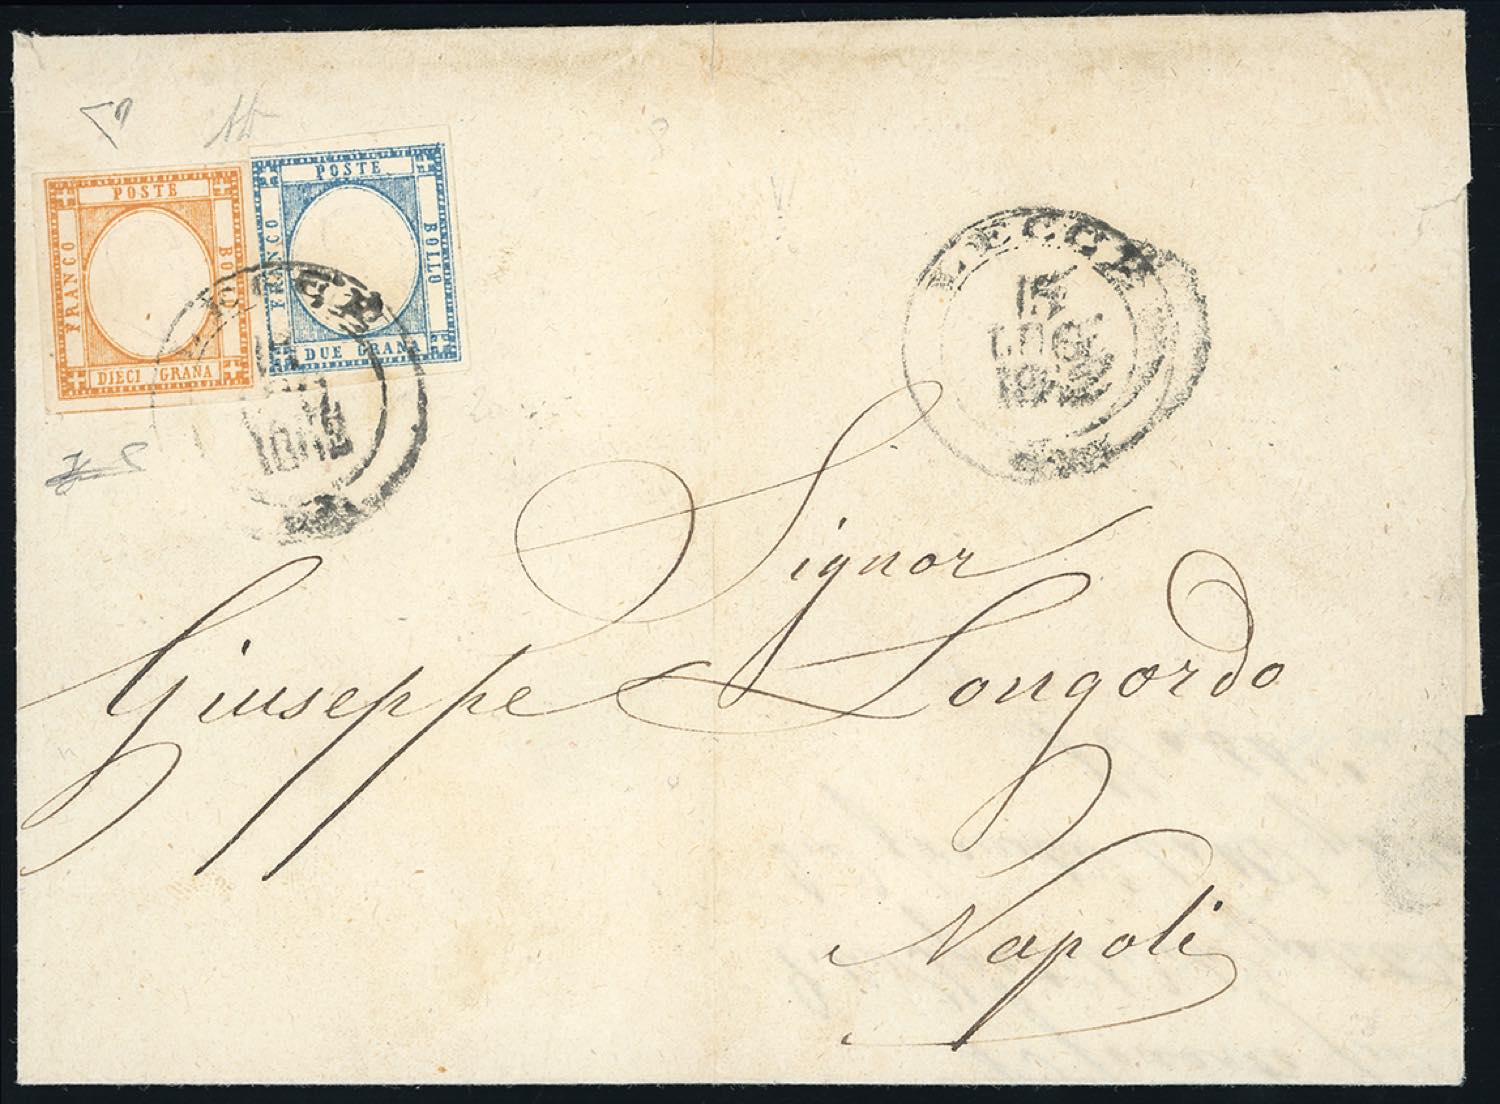 POSTE
FRANCO
BOLLO
DIECI GRANA
POSTE
FRANCO
BOLLO
DUE GRANA
LECCE
15
LUG
LECCE
15
LUG
1862
Signor
Giuseppe Longordo
Napoli